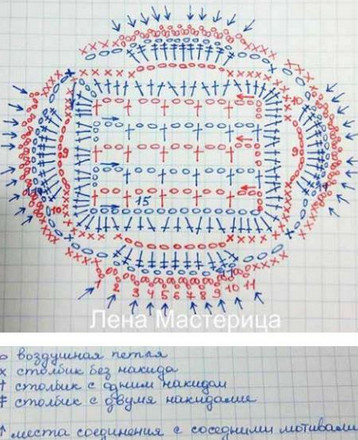 10
8
9
10
15
1 2 3 4 5 6 7 8 9 10 11
Лена Мастерица
о воздушная петля
х столбик без накида
† столбик с одним накидом
‡ столбик с двумя накидами
↑ места соединения с соседними мотивами